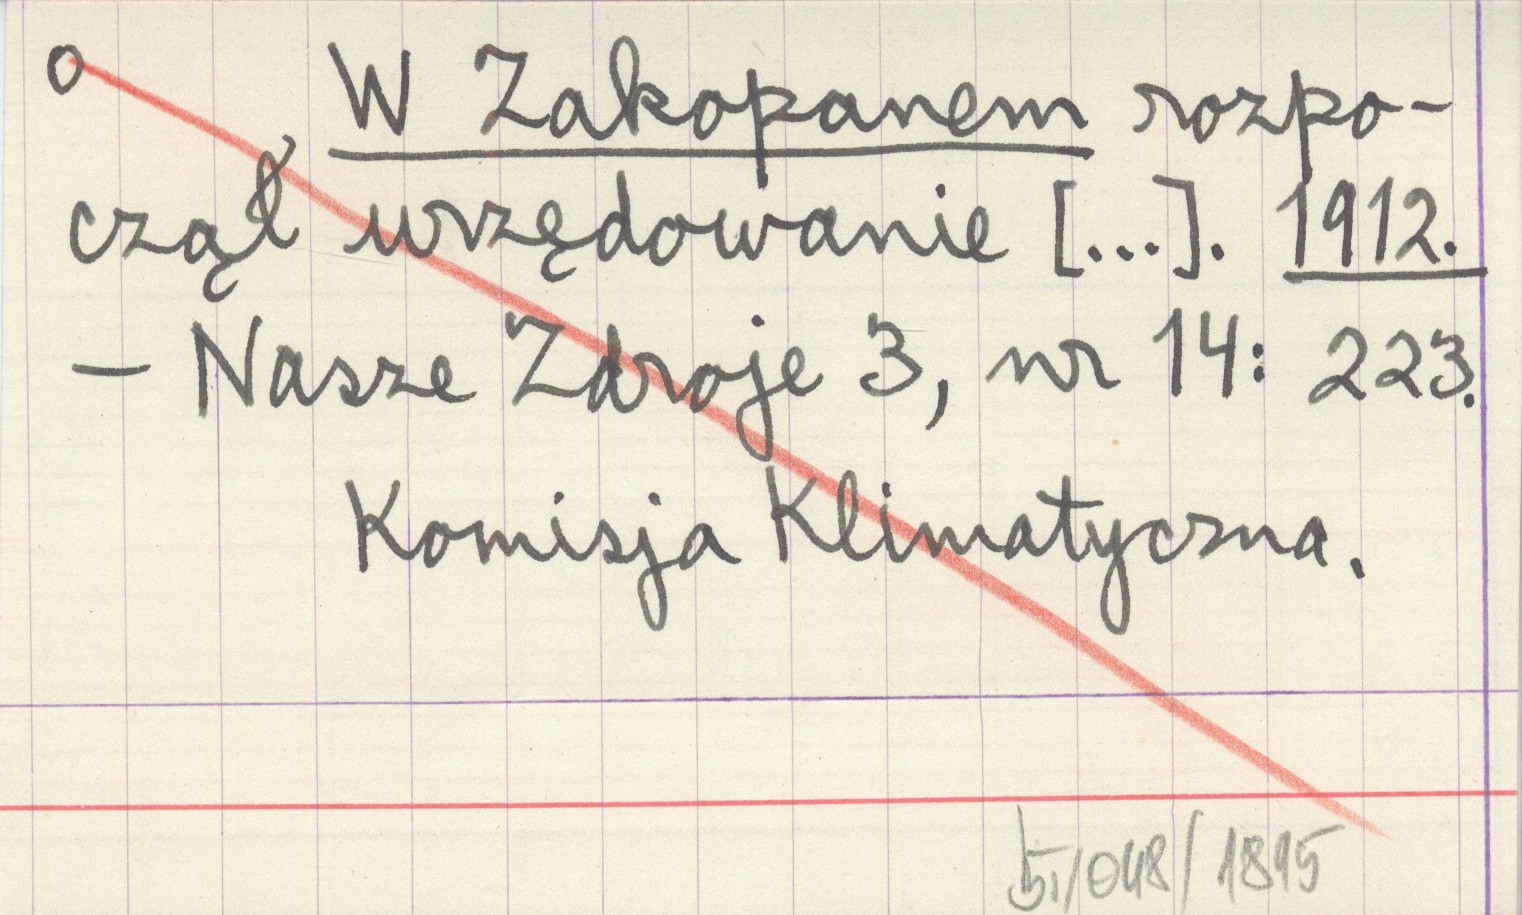 o W Zakopanem rozpo-
czął urzędowanie [...]. 1912.
- Nasze Zdroje 3, nr 14: 223.
Komisja Klimatyczna.
/048/1895